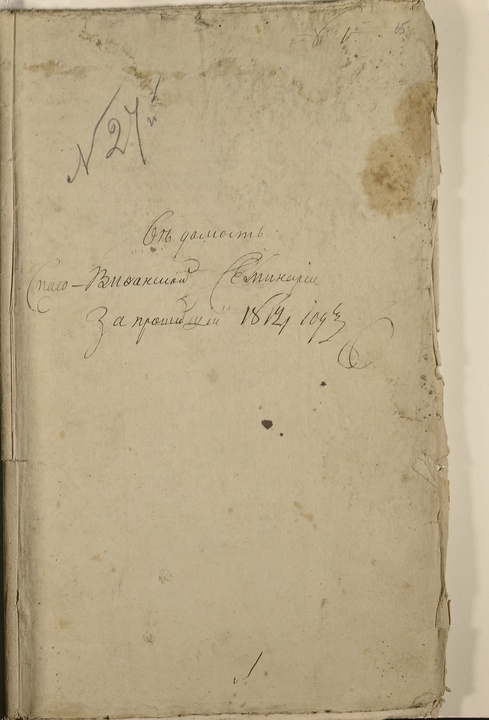 № 27й
Вѣдомость
Спасо-Виѳанской Семинаріи
За прошедшій 1814 годъ
1